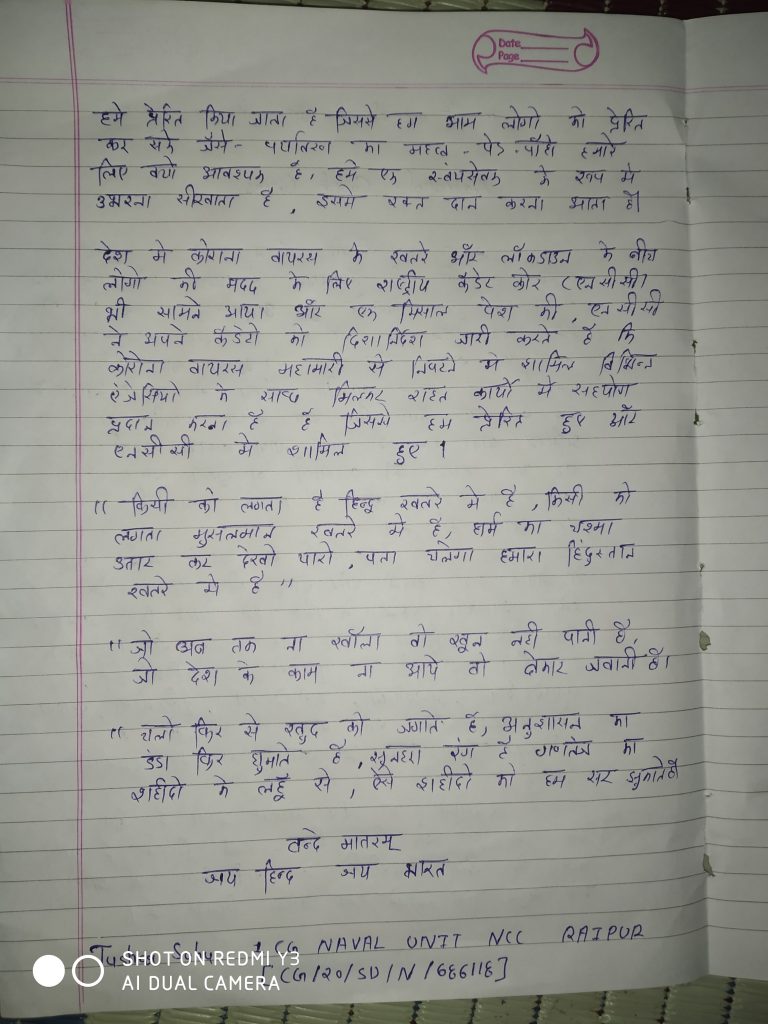 Date
Page
हमे प्रेरित किया जाता है जिससे हम आम लोगो को प्रेरित
कर सके जैसे - पर्यावरण का महत्व - पेड़ - पौधे हमारे
लिए क्यो आवश्यक है, हमे एक स्वंयसेवक के रूप मे
उभरना सीखाता है, इसमे रक्त दान करना आता है।
देश मे कोरोना वायरस के खतरे और लॉकडाउन के बीच
लोगो की मदद के लिए राष्ट्रीय कैडेट कोर (एनसीसी)
भी सामने आया और एक मिसाल पेश की, एनसीसी
ने अपने कैडेटो को दिशानिर्देश जारी करते है कि
कोरोना वायरस महामारी से निपटने मे शामिल विभिन्न
एंजेसियो के साथ मिलकर राहत कार्यो मे सहयोग
प्रदान करना है है जिससे हम प्रेरित हुए और
एनसीसी मे शामिल हुए।
" किसी को लगता है हिन्दू खतरे मे है, किसी को
लगता मुसलमान खतरे मे है, धर्म का चश्मा
उतार कर देखो यारो, पता चलेगा हमारा हिंदुस्तान
खतरे मे है "
" जो अब तक ना खौला वो खून नही पानी है,
जो देश के काम ना आये वो बेकार जवानी है।
" चलो फिर से खुद को जगाते है, अनुशासन का
डंडा फिर घुमाते है, सुनहरा रंग है गणतंत्र का
शहीदो के लहू से, ऐसे शहीदो को हम सर झुकाते है
वन्दे मातरम्
जय हिन्द जय भारत
CG NAVAL UNIT NCC RAIPUR
[CG/20/SD/N/686118]
SHOT ON REDMI Y3
AI DUAL CAMERA